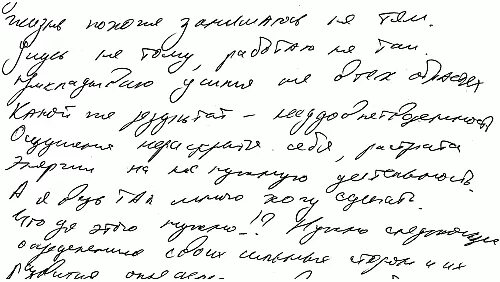 Жизнь похоже занимаюсь не тем.
Учусь не тому, работаю не там.
Прикладываю усилия не в тех областях
Какой же результат – неудовлетворенность
Ощущение нераскрытия себя, растрата
Энергии на ненужную деятельность.
А я ведь так много хочу сделать.
Что для этого нужно–!? Нужно следующее
определение своих сильных сторон и их
развития